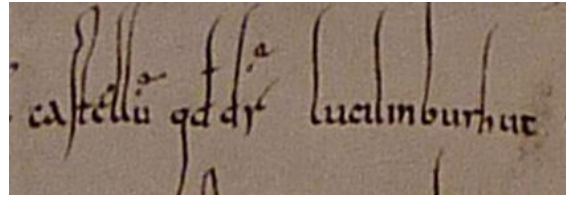 castellū qđ dr̄ lucilinburhuc